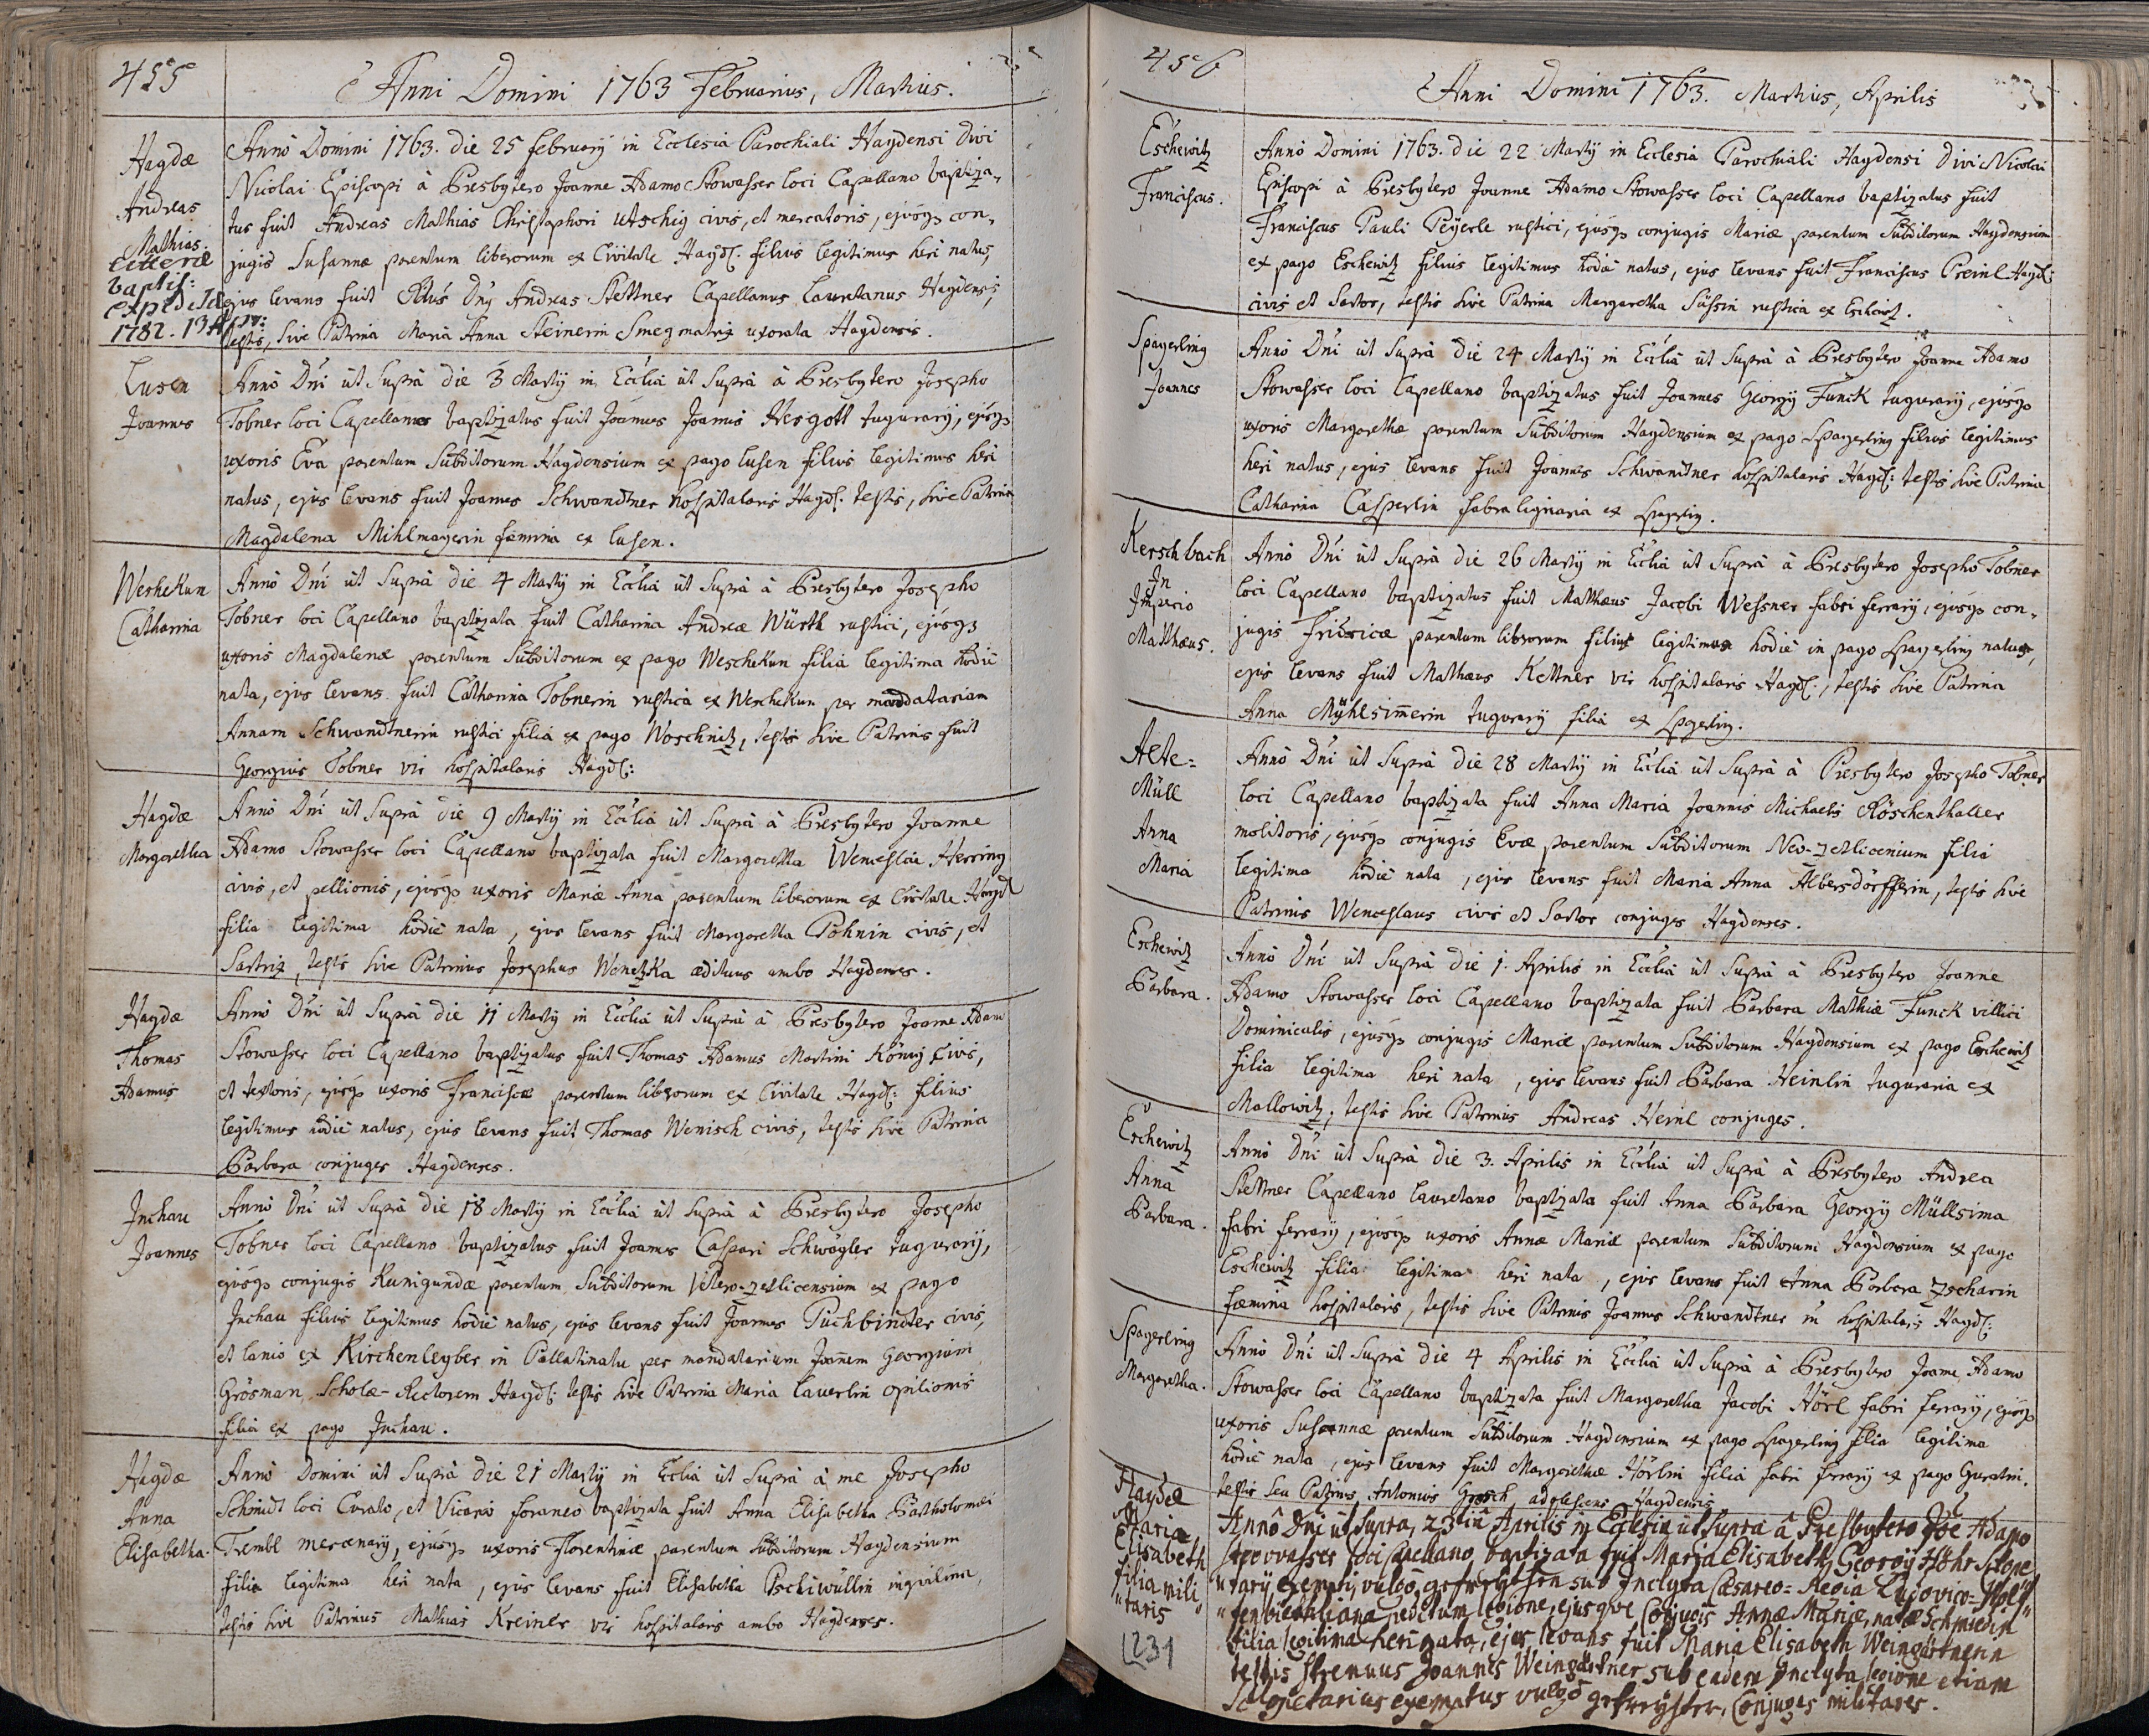 455
Anni Domini 1763 Februarius, Martius.
Haydæ
Andreas
Mathias.
litteræ
baptis:
expeditæ
1782. 13
Anno Domini 1763. die 25 february in Ecclesia Parochiali Haydensi Divi
Nicolai Episcopi à Presbytero Joanne Adamo Stowasser loci Capellano baptiza-
tus fuit Andreas Mathias Christophori Utschig civis, et mercatoris, ejusq3 con-
jugis Susannæ parentum liberorum ex Civitate Hayd: filius legitimus heri natus,
ejus levans fuit Rdus Dnus Andreas Stettner Capellanus Lauretanus Haydensis,
testis, sive Patrina Maria Anna Steinerin Smegmatrix uxorata Haydensis.
Lusen
Joannes
Anno Dni ut Supra die 3 Marty in Ecclia ut Supra à Presbytero Josepho
Tobner loci Capellanus baptizatus fuit Joannes Joannis Hergott tugurary, ejusq3
uxoris Eva parentum Subditorum Haydensium ex pago Lusen filius legitimus heri
natus, ejus levans fuit Joannes Schwandtner hospitalaris Hayd: testis, sive Patrina
Magdalena Mihlmayerin fæmina ex Lusen.
Weshekun
Catharina
Anno Dni ut Supra die 4 Marty in Ecclia ut Supra à Presbytero Josepho
Tobner loci Capellano baptizata fuit Catharina Andreæ Würth rustici, ejusq3
uxoris Magdalenæ parentum Subditorum ex pago Weschekun filia legitima hodie
nata, ejus levans fuit Catharina Tobnerin rustica ex Weschekun per mandatariam
Annam Schwandtnerin rustici filia ex pago Woschnitz, testis sive Patrinus fuit
Georgius Tobner vir hospitalaris Hayd:
Haydæ
Margaretha
Anno Dni ut Supra die 9 Marty in Ecclia ut Supra à Presbytero Joanne
Adamo Stowasser loci Capellano baptizata fuit Margaretha Wenceslai Herring
civis, et pellionis, ejusq3 uxoris Mariæ Anna parentum liberorum ex Civitate Hayd:
filia legitima hodie nata, ejus levans fuit Margaretha Pöhnin civis, et
Sartrix, testis sive Patrinus Josephus Wenetzka ædituus ambo Haydenses.
Haydæ
Thomas
Adamus
Anno Dni ut Supra die 11 Marty in Ecclia ut Supra à Presbytero Joanne Adamo
Stowasser loci Capellano baptizatus fuit Thomas Adamus Martini König civis,
et textoris, ejusq3 uxoris Franciscæ parentum liberorum ex Civitate Hayd: filius
legitimus hodie natus, ejus levans fuit Thomas Wenisch civis, testis sive Patrina
Barbara conjuges Haydenses.
Inchau
Joannes
Anno Dni ut Supra die 18 Marty in Ecclia ut Supra à Presbytero Josepho
Tobner loci Capellano baptizatus fuit Joannes Caspari Schwägler tugurary,
ejusq3 conjugis Kunigundæ parentum Subditorum Vetero-zetlicensium ex pago
Inchau filius legitimus hodie natus, ejus levans fuit Joannes Puchbindter civis,
et lanio ex Kirchenleyber in Pallatinatu per mandatarium Joannem Georgium
Grösman Scholæ-Rectorem Hayd: testis sive Patrina Maria Lauerlin opilionis
filia ex pago Inchau.
Haydæ
Anna
Elisabetha.
Anno Domini ut Supra die 21 Marty in Ecclia ut Supra à me Josepho
Schmidt loci Curato, et Vicario foraneo baptizata fuit Anna Elisabetha Bartholomæi
Trembl mercenary, ejusq3 uxoris Florentinæ parentum Subditorum Haydensium
filia legitima heri nata, ejus levans fuit Elisabetha Pschiwüllin inquilina,
testis sive Patrinus Mathias Kreiner vir hospitalaris ambo Haydenses.
456
Anni Domini 1763. Martius, Aprilis
Eschewitz
Franciscus.
Anno Domini 1763. die 22 Marty in Ecclesia Parochiali Haydensi Divi Nicolai
Episcopi à Presbytero Joanne Adamo Stowasser loci Capellano baptizatus fuit
Franciscus Pauli Peyerle rustici, ejusq3 conjugis Mariæ parentum Subditorum Haydensium
ex pago Eschewitz filius legitimus hodie natus, ejus levans fuit Franciscus Preinl Hayd:
civis et Sartor, testis sive Patrina Margaretha Süssin rustica ex Eschewitz.
Spagerling
Joannes
Anno Dni ut Supra die 24 Marty in Ecclia ut Supra à Presbytero Joanne Adamo
Stowasser loci Capellano baptizatus fuit Joannes Georgy Funck tugurary, ejusq3
uxoris Margarethæ parentum Subditorum Haydensium ex pago Spagerling filius legitimus
heri natus, ejus levans fuit Joannes Schwandtner hospitalaris Hayd: testis sive Patrina
Catharina Casperlin fabra lignaria ex Spagerling.
Kerschbach
In
Inspicio
Matthæus.
Anno Dni ut Supra die 26 Marty in Ecclia ut Supra à Presbytero Josepho Tobner
loci Capellano baptizatus fuit Matthæus Jacobi Wessner fabri ferrary, ejusq3 con-
jugis Fridricæ parentum liberorum filius legitimus hodie in pago Spagerling natus,
ejus levans fuit Mathæus Kettner vir hospitalaris Hayd:, testis sive Patrina
Anna Mÿhlsim̄erin tugurary filia ex Spgerling.
Alte=
Müll
Anna
Maria
Anno Dni ut Supra die 28 Marty in Ecclia ut Supra à Presbytero Josepho Tobner
loci Capellano baptizata fuit Anna Maria Joannis Michaelis Röschenthaller
molitoris, ejusq3 conjugis Evæ parentum Subditorum Neo-zetlicenium filia
legitima hodie nata, ejus levans fuit Maria Anna Albersdörfferin, testis sive
Patrinus Wenceslaus civis et Sartor conjuges Haydenses.
Eschewitz
Barbara.
Anno Dni ut Supra die 1. Aprilis in Ecclia ut Supra à Presbytero Joanne
Adamo Stowasser loci Capellano baptizata fuit Barbara Mathiæ Funck villici
Dominicalis, ejusq3 conjugis Mariæ parentum Subditorum Haydensium ex pago Eschewitz
filia legitima heri nata, ejus levans fuit Barbara Heinlin tuguraria ex
Mallowitz, testis sive Patrinus Andreas Heinl conjuges.
Eschewitz
Anna
Barbara.
Anno Dni ut Supra die 3. Aprilis in Ecclia ut Supra à Presbytero Andrea
Stettner Capellano Lauretano baptizata fuit Anna Barbara Georgÿ Müllsima
fabri ferrary, ejusq3 uxoris Annæ Mariæ parentum Subditorum Haydensium ex pago
Eschewitz filia legitima heri nata, ejus levans fuit Anna Barbara Zscharin
fæmina hospitalaris, testis sive Patrinus Joannes Schwandtner hospitalaris Hayd:
Spagerling
Margaretha.
Anno Dni ut Supra die 4 Aprilis in Ecclia ut Supra à Presbytero Joanne Adamo
Stowasser loci Capellano baptizata fuit Margaretha Jacobi Hörl fabri ferrary, ejusq3
uxoris Susannæ parentum Subditorum Haydensium ex pago Spagerling filia legitima
hodie nata, ejus levans fuit Margarethæ Hörlin filia fabri ferrary ex pago Guratin.
testis seu Patrinus Antonius Grosch adolescens Haydensis.
Haydæ
Maria
Elisabeth
filia mili„
„taris
1231
Anno Dni ut Supra, 23tia Aprilis in Ecclesia ut Supra â Presbytero Jõe Adamo
Stowasser loci Capellano baptizata fuit Maria Elisabeth, Georgÿ Höhr Sclope„
„tarÿ exempti, vulgo gefreÿten sub Inclyta Cæsareo=Regia Ludovico=
peditum legione, ejusque Conjugis Annæ Mariæ, natæ Schmiedin
filia legitima heri nata, ejus levans fuit Maria Elisabeth Weingärtnerin
testis strenuus Joannes Weingärtner sub eadem Inclyta legione etiam
Sclopetarius exemptus vulgo gefreÿter, Conjuges militares.